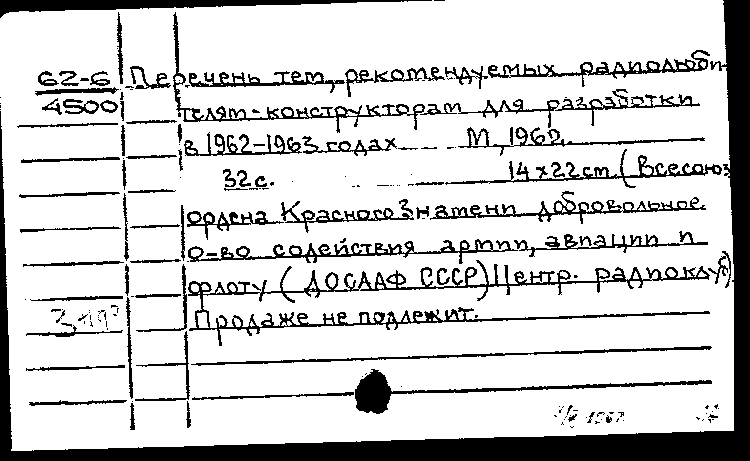 62-6 Перечень тем, рекомендуемых радиолюби-
4500 телям-конструкторам для разработки
в 1962-1963 годах М, 1962.
32с. 14х22см (Всесоюз
ордена Красного Знамени добровольное
о-во содействия армии, авиации и
флоту (ДОСААФ СССР) Центр. радиоклуб)
Продаже не подлежит.